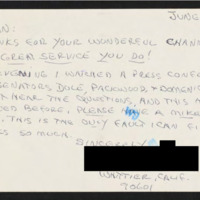 JUNE
N:
KS FOR YOUR WONDERFUL CHANN
GREAT SERVICE YOU DO!
I WATCHED A PRESS CONFE
SENATORS DOLE, PACKWOOD & DOMENI
T HEAR THE QUESTIONS, AND THIS
ED BEFORE. PLEASE A MIKE
. THIS IS THE ONLY FAULT I CAN FI
KS SO MUCH.
SINCERELY
WHITTIER, CALIF.
90601